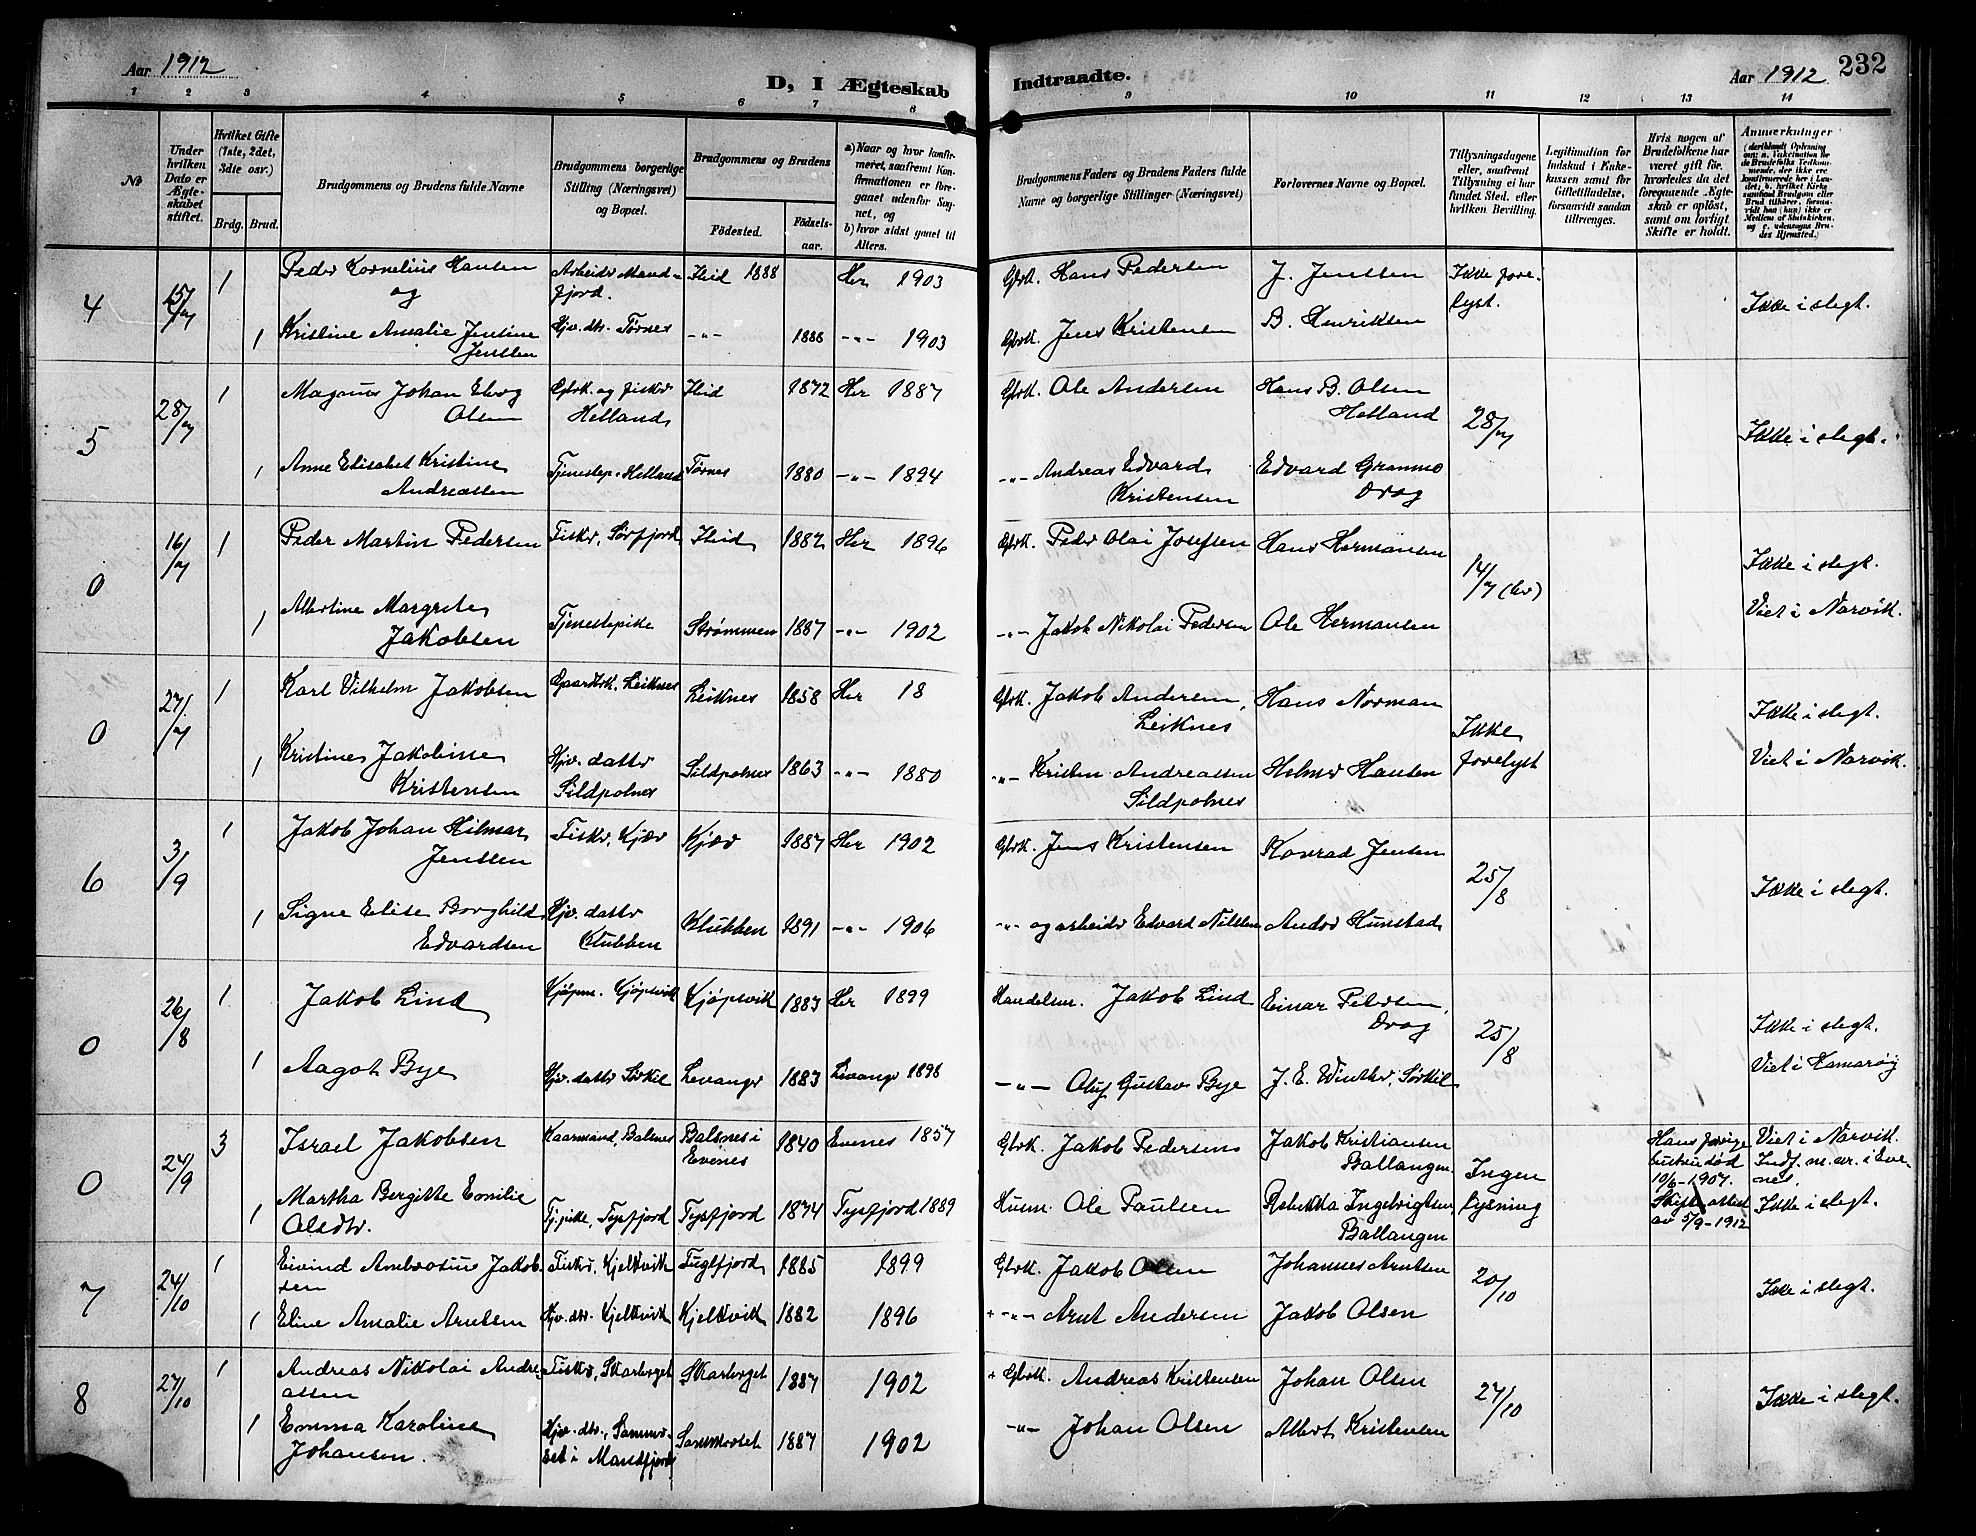 Aar 1912
D, I Ægteskab
Indtraadte.
Aar 1912
232
1 2 3 4 5 6 7 8 9 10 11 12 13 14
№
Under hvilken Dato er Ægteskabet stiftet.
Hvilket Gifte (1ste, 2det, 3dte osv.)
Brdg. Brud.
Brudgommens og Brudens fulde Navne
Brudgommens borgerlige Stilling (Næringsvei) og Bopæl.
Brudgommens og Brudens
Födested.
Födselsaar.
a) Naar og hvor konfirmeret, saafremt Konfirmationen er foregaaet udenfor Sognet, og
b) hvor sidst gaaet til Alters.
Brudgommens Faders og Brudens Faders fulde Navne og borgerlige Stillinger (Næringsvei)
Forlovernes Navne og Bopæl.
Tillysningsdagene eller, saafremt Tillysning ei har fundet Sted, efter hvilken Bevilling.
Legitimation for Indskud i Enkekassen samt for Giftetilladelse, forsaavidt saadan tiltrænges.
Hvis nogen af Brudefolkene har været gift før, hvorledes da det foregaaende Ægteskab er opløst, samt om lovligt Skifte er holdt.
Anmerkninger
4 15/7 1 Peder Kornelius Hansen Arbeider Mandfjord. Ibid 1888 Her 1903 Gbrk. Hans Pedersen J. Jenssen Ikke forelyst. Ikke i slegt.
og
1 Kristine Amalie Jensine Jenssen Hjv. dtr. Tørnes -"- 1888 -"- 1903 Gbrk. Jens Kristensen B. Henriksen
5 28/7 1 Magnus Johan Elvog Olsen Gbrk. og fisker Helland Ibid 1872 Her 1887 Gbrk. Ole Andersen Hans B. Olsen Helland 28/7 Ikke i slegt.
1 Anne Elisabet Kristine Andreassen Tjenestep. Helland Tørnes 1880 -"- 1894 -"- Andreas Edvard Kristensen Edvard Grammo Drag
0 16/7 1 Peder Martin Pedersen Fisker, Sørfjord Ibid 1882 Her 1896 Gbrk. Peder Olai Josefsen Hans Hermansen 14/7 Ikke i slegt.
1 Albertine Margrete Jakobsen Tjenestepike Strømmen 1887 -"- 1902 -"- Jakob Nikolai Pedersen Ole Hermansen Viet i Narvik.
0 27/7 1 Karl Vilhelm Jakobsen Gaardbrk. Leiknes Leiknes 1858 Her 18 Gbrk. Jakob Andersen, Leiknes Hans Norman Ikke forelyst Ikke i slegt.
1 Kristine Jakobine Kristensen Hjv. datter Sildpolnes Sildpolnes 1863 -"- 1880 -"- Kristen Andreassen Sildpolnes Helmer Hansen Viet i Narvik.
6 3/9 1 Jakob Johan Hilmar Jenssen Fisker, Kjær Kjær 1887 Her 1902 Gbrk. Jens Kristensen Konrad Jensen 25/8 Ikke i slegt.
1 Signe Elise Borghild Edvardsen Hjv. datter Klubben Klubben 1891 -"- 1906 -"- og arbeider Edvard Nilssen Andor Hunstad
0 26/8 1 Jakob Lind Kjøpm. Kjøpsvik Kjøpsvik 1883 Her 1899 Handelsm. Jakob Lind Einar Petersen, Drag 25/8 Ikke i slegt.
1 Aagot Bye Hjv. datter Sørkil Levanger 1883 Levanger 1898 -"- Oluf Gustav Bye J. E. Winther, Sørkil Viet i Hamarøy
0 24/9 3 Israel Jakobsen Kaarmand, Balsnes Balsnes i Evenes 1840 Evenes 1857 Gbrk. Jakob Pedersen Jakob Kristiansen Ballangen Ingen lysning Hans forrige hustru död 10/6-1907. Skifteattest av 5/9-1912 Viet i Narvik. Indf. m. nr. i Evenes.
1 Martha Bergitte Emilie Olsdtr. Tj.pike, Tysfjord Tysfjord 1874 Tysfjord 1889 Husm. Ole Paulsen Rebekka Ingebrigtsen, Ballangen Ikke i slegt.
7 24/10 1 Eivind Ambrosius Jakobsen Fisker, Kjelkvik Fuglfjord 1885 1899 Gbrk. Jakob Olsen Johannes Arntsen 20/10 Ikke i slegt.
1 Eline Amalie Arntsen Hjv. dtr. Kjelkvik Kjelkvik 1882 1896 + -"- Arnt Andersen Jakob Olsen
8 27/10 1 Andreas Nikolai Andreassen Fisker, Skarberget Skarberget 1887 1902 + Gbrk. Andreas Kristensen Johan Olsen 27/10 Ikke i slegt.
1 Emma Karoline Johansen. Hjv. dtr., Sommerset i Mandfjord Sommerset 1887 1902 -"- Johan Olsen Albert Kristensen